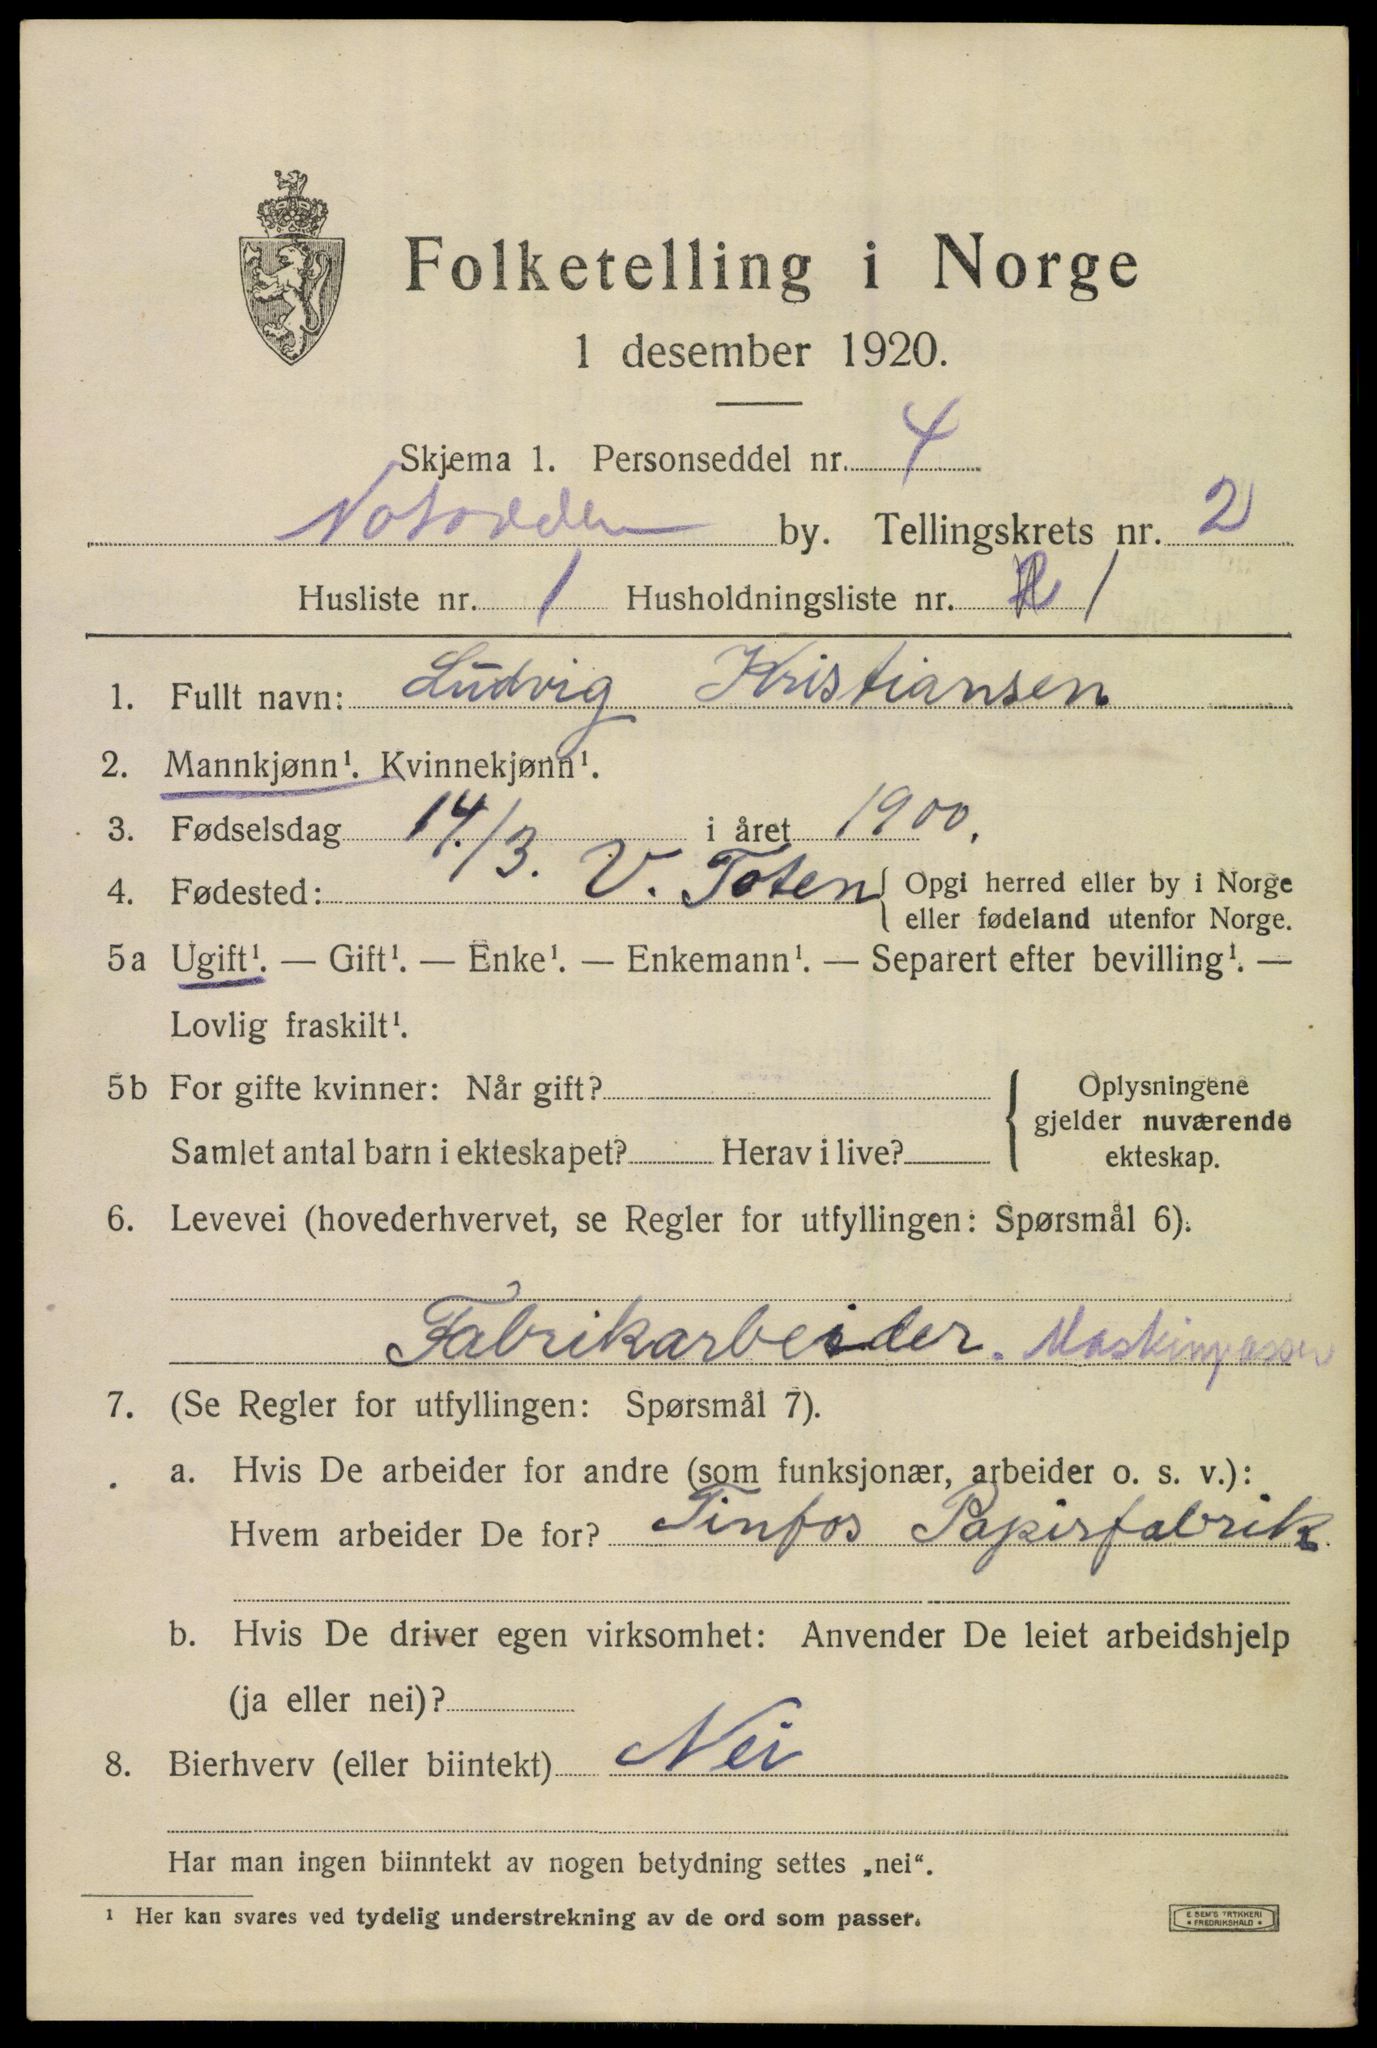 Folketelling i Norge
1 desember 1920.
Skjema 1. Personseddel nr. 4
Notodden by. Tellingskrets nr. 2
Husliste nr. 1 Husholdningsliste nr. 1
1. Fullt navn: Ludvig Kristiansen
2. Mannkjønn¹. Kvinnekjønn¹.
3. Fødselsdag 14./3. i året 1900.
4. Fødested: V. Toten { Opgi herred eller by i Norge
eller fødeland utenfor Norge.
5a Ugift¹. — Gift¹. — Enke¹. — Enkemann¹. — Separert efter bevilling¹. —
Lovlig fraskilt¹.
5b For gifte kvinner: Når gift? { Oplysningene
gjelder nuværende
ekteskap.
Samlet antal barn i ekteskapet? Herav i live?
6. Levevei (hovederhvervet, se Regler for utfyllingen: Spørsmål 6).
Fabrikarbeider. Maskinpasser
7. (Se Regler for utfyllingen: Spørsmål 7).
a. Hvis De arbeider for andre (som funksjonær, arbeider o. s. v.):
Hvem arbeider De for? Tinfos Papirfabrik.
b. Hvis De driver egen virksomhet: Anvender De leiet arbeidshjelp
(ja eller nei)?
8. Bierhverv (eller biintekt) Nei
Har man ingen biinntekt av nogen betydning settes „nei“.
¹ Her kan svares ved tydelig understrekning av de ord som passer.
E. SEM'S TRYKKERI
* FREDRIKSHALD *